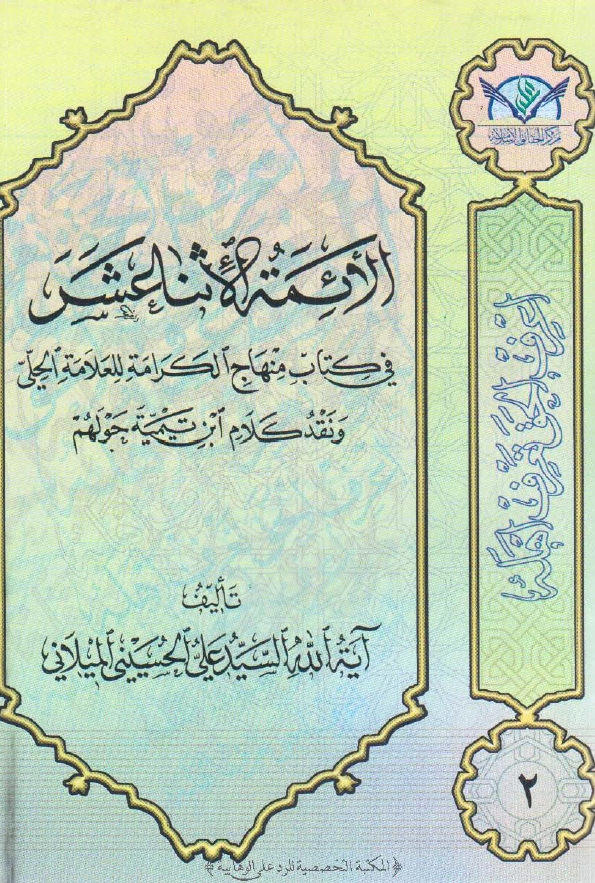 مركز الحقائق الإسلامية
إعرف الحق تعرف أهله
الأَئِمَّةُ الإِثْنَا عَشَرَ
في كِتَابِ مِنْهَاجِ الكَرَامَةِ لِلعَلَّامَةِ الحِلّي
وَنَقْدُ كَلَامِ ابْنِ تَيْمِيَّةَ حَوْلَهُمْ
تَأليفُ
آيَةُ اللهِ السَّيِّدُ عَلِيُّ الحُسَيْنِي المِيْلَانِي
٢
﴿المكتبة التخصصية للرد على الوهابية﴾